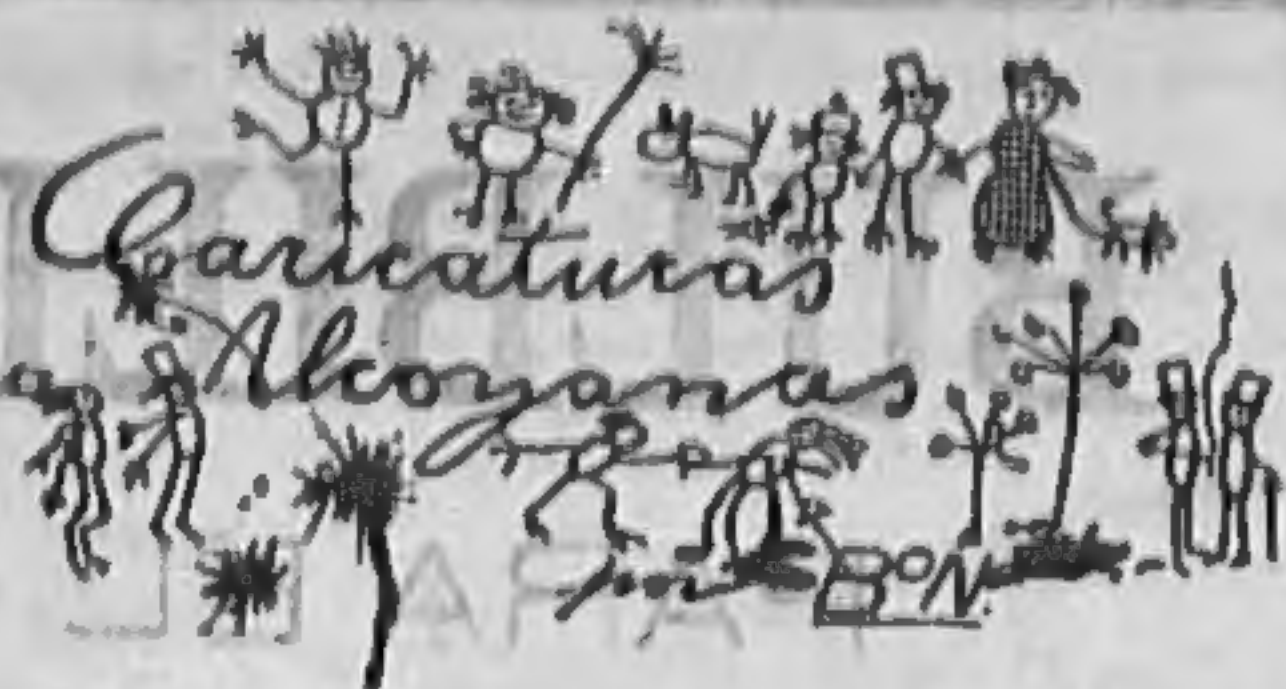 Caricaturas
Alcoyanas
BON